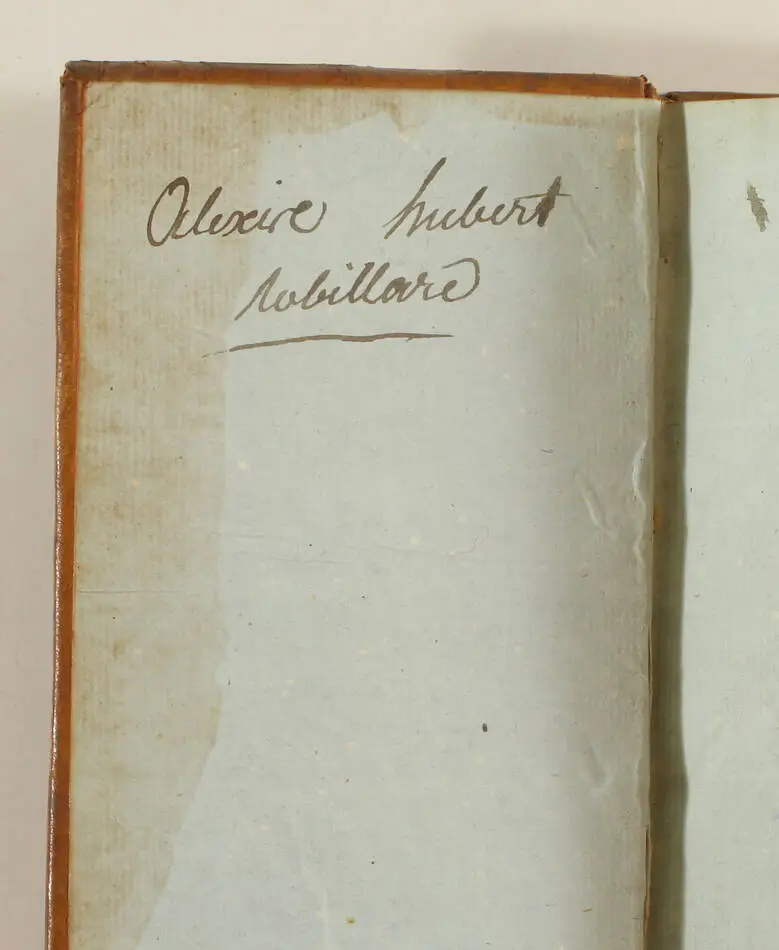 Alexire hubert
robillard